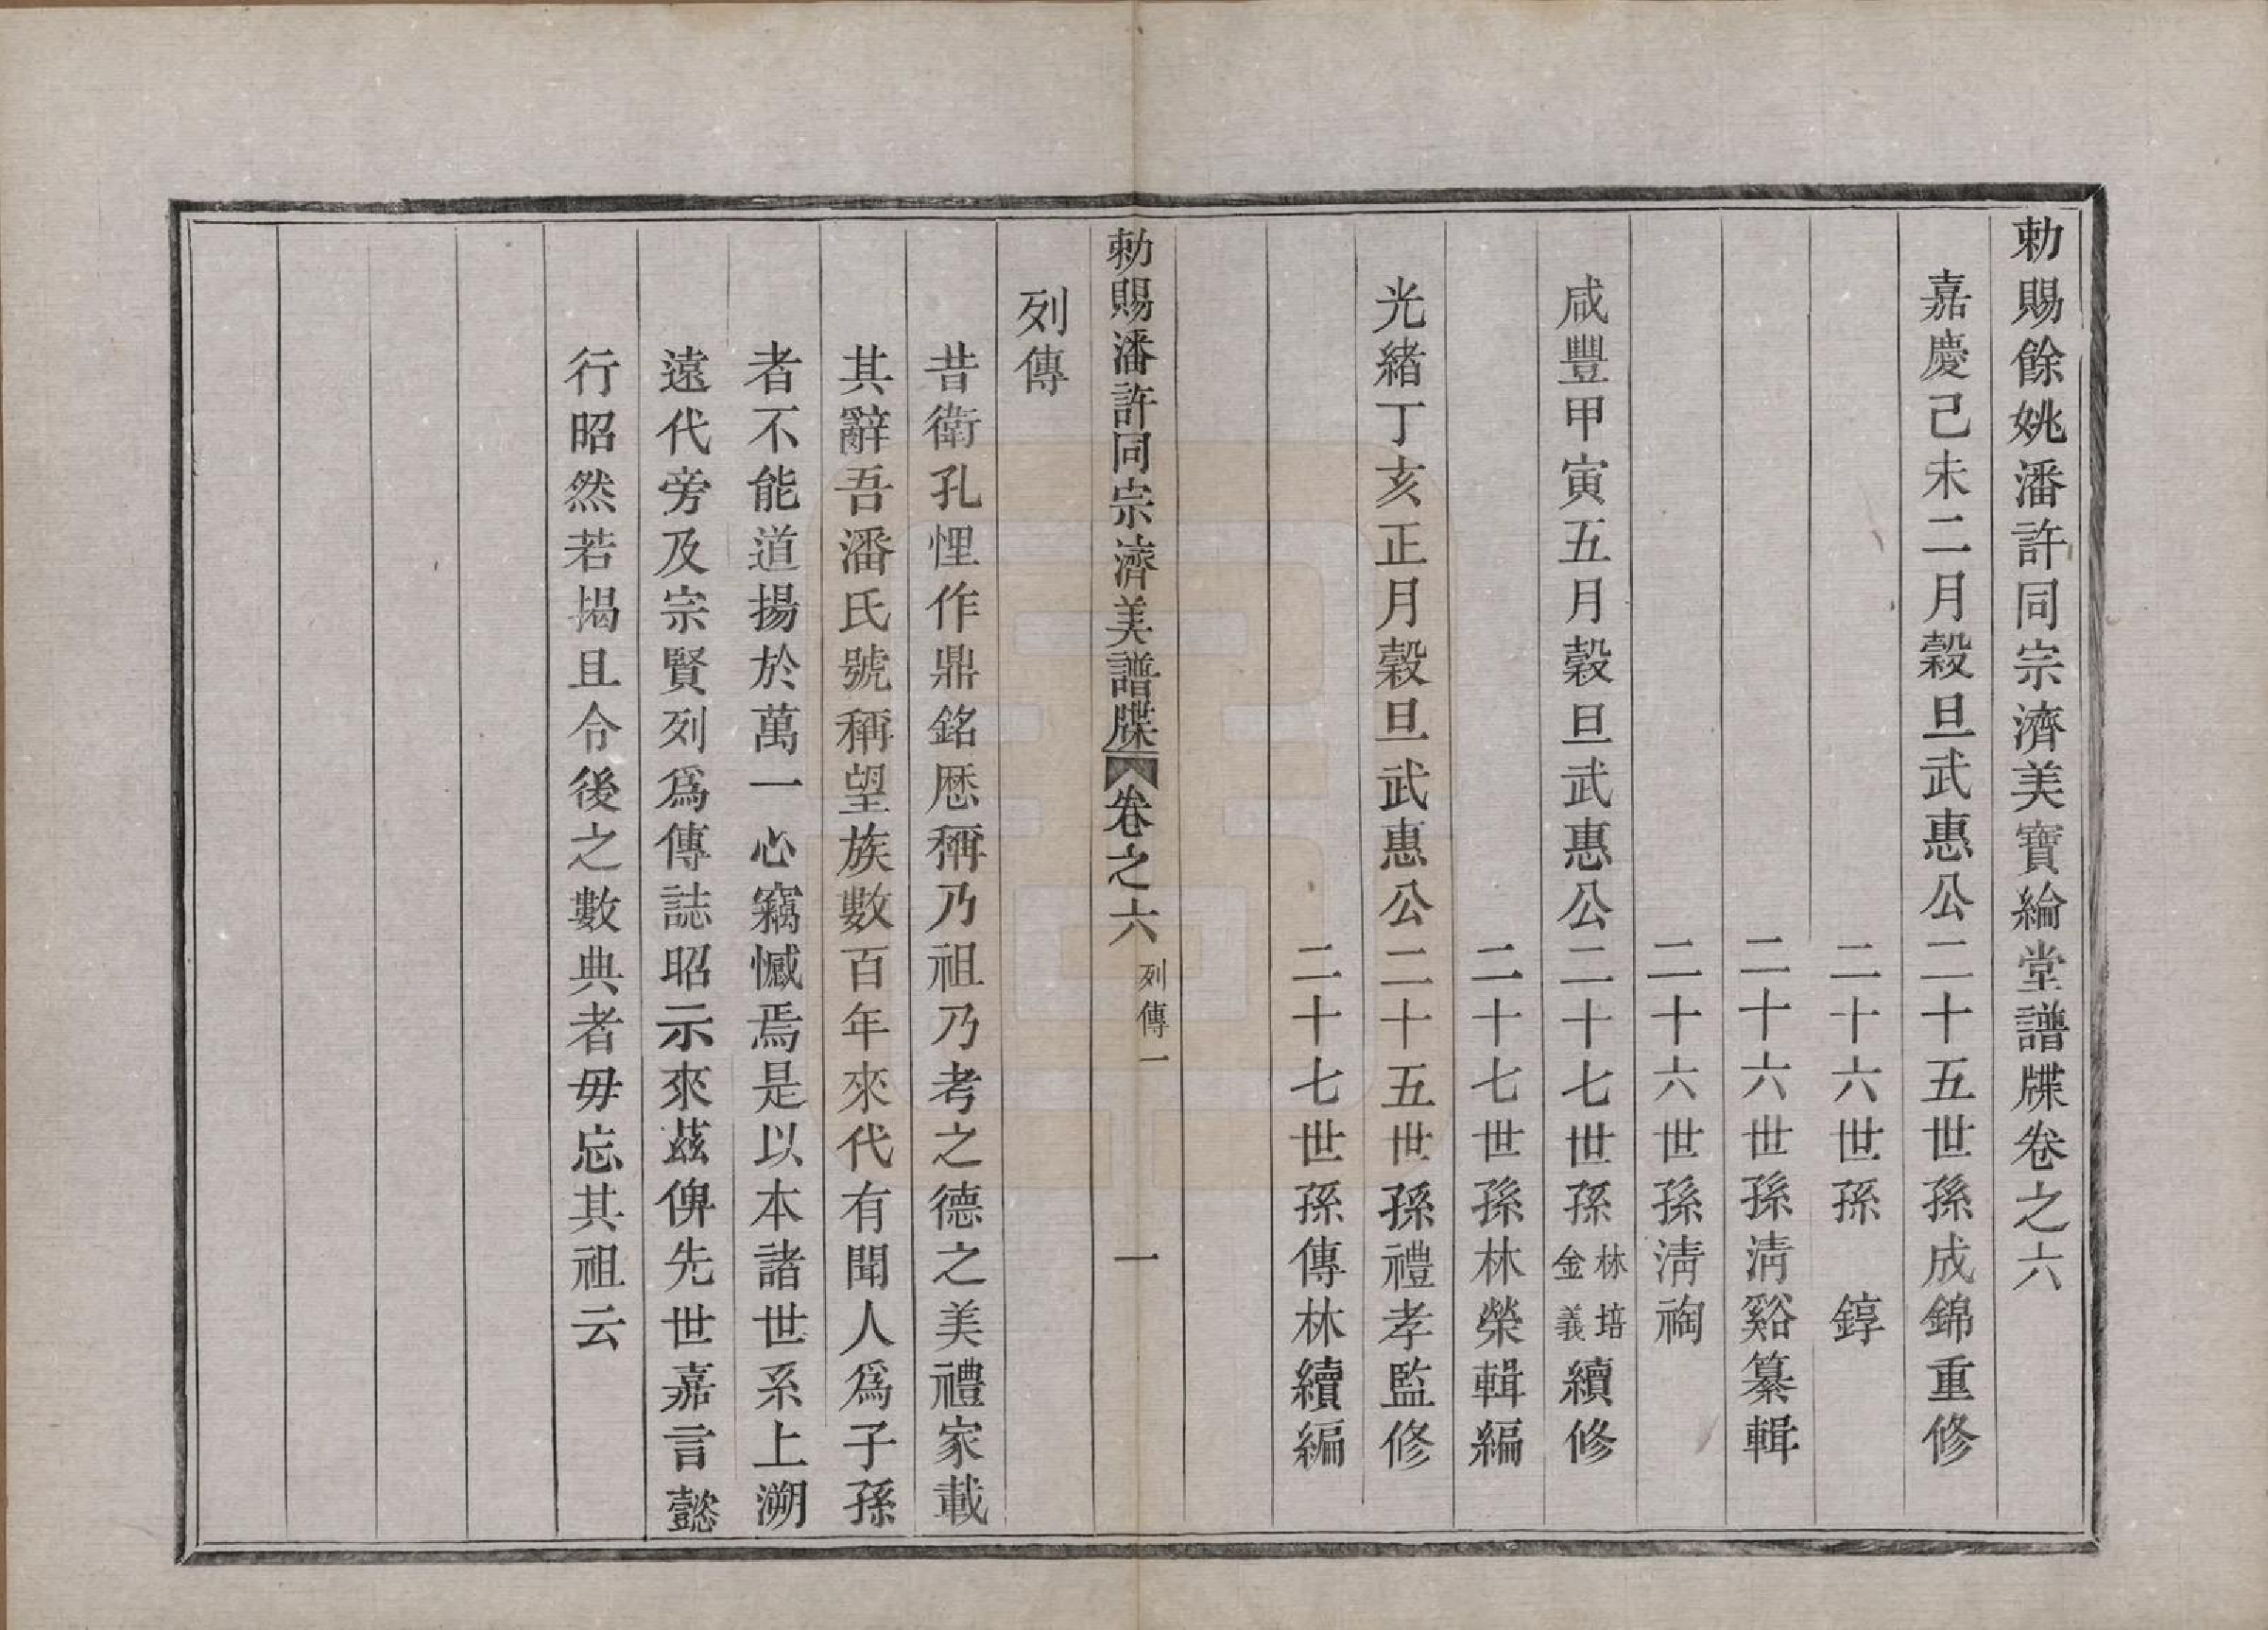 勅賜餘姚潘許同宗濟美寶綸堂譜牒卷之六
嘉慶己未二月穀旦武惠公二十五世孫成錦重修
二十六世孫 錞
二十六世孫淸谿纂輯
二十六世孫淸祹
咸豐甲寅五月穀旦武惠公二十七世孫林培金義續修
二十七世孫林榮輯編
光緒丁亥正月穀旦武惠公二十五世孫禮孝監修
二十七世孫傳林續編
勅賜潘許同宗濟美譜牒 卷之六 列傳一 一
列傳
昔衛孔悝作鼎銘厯稱乃祖乃考之德之美禮家載
其辭吾潘氏號稱望族數百年來代有聞人爲子孫
者不能道揚於萬一心竊憾焉是以本諸世系上溯
遠代旁及宗賢列爲傳誌昭示來茲俾先世嘉言懿
行昭然若揭且令後之數典者毋忘其祖云